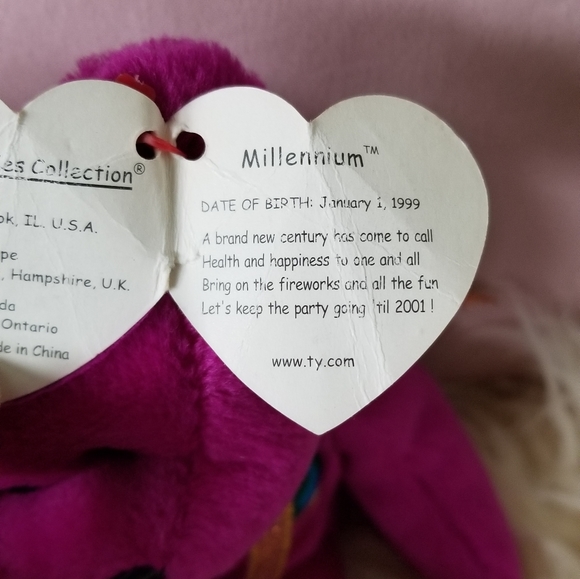 es Collection®
ok, IL. U.S.A.
pe
, Hampshire, U.K.
da
Ontario
de in China
Millennium™
DATE OF BIRTH: January 1, 1999
A brand new century has come to call
Health and happiness to one and all
Bring on the fireworks and all the fun
Let's keep the party going 'til 2001 !
www.ty.com